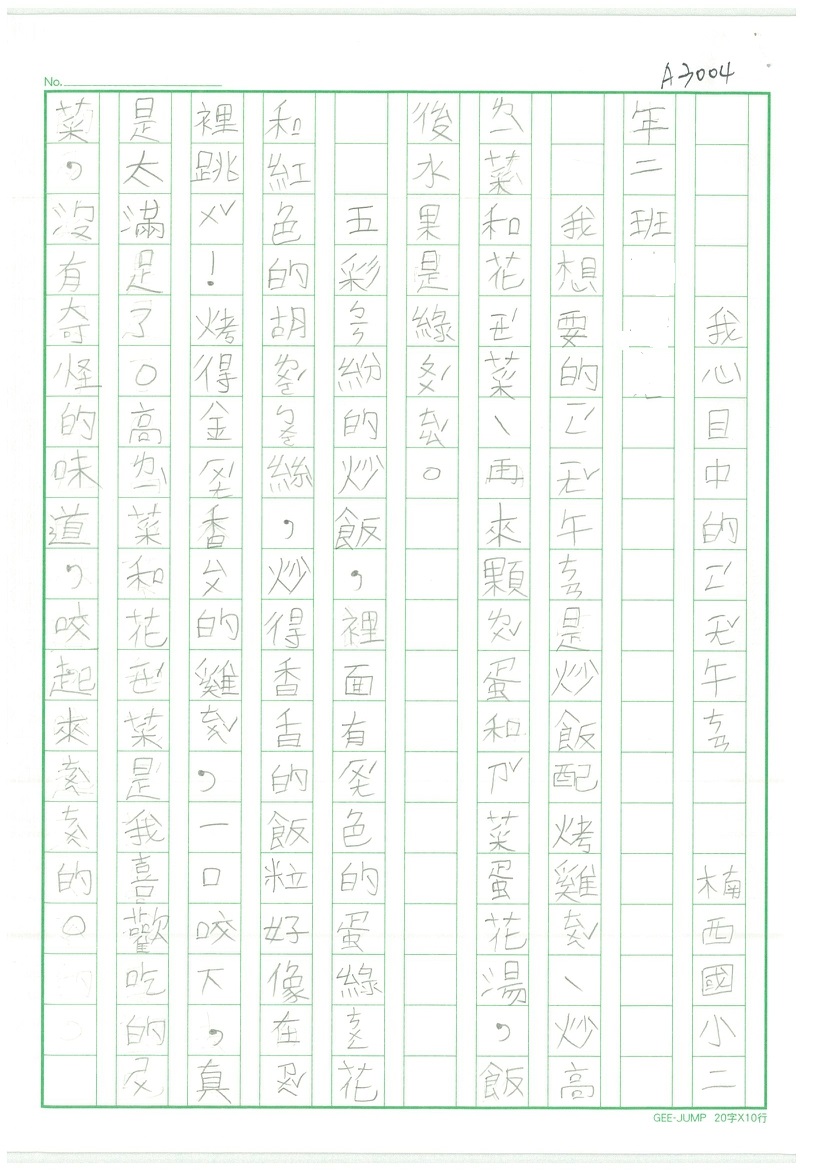 A3004
No.
我心目中的ㄧㄥˊㄧㄤˇ午ㄘㄢ 楠西國小二
年二班
我想要的ㄧㄥˊㄧㄤˇ午ㄘㄢ是炒飯配烤雞ㄊㄨㄟˇ、炒高
ㄌㄧ菜和花ㄧㄝˊ菜、再來顆ㄌㄨˇ蛋和ㄗˇ菜蛋花湯，飯
後水果是綠ㄆㄨˊㄊㄠ。
五彩ㄅㄣ紛的炒飯，裡面有ㄏㄨㄤ色的蛋綠ㄘㄨㄥ花
和紅色的胡ㄌㄨㄛˊㄅㄛ絲，炒得香香的飯粒好像在
裡跳ㄨˇ！烤得金ㄏㄨㄤ香ㄆㄣ的雞ㄊㄨㄟˇ，一口咬下，真
是太滿足了。高ㄌㄧˋ菜和花ㄧㄝˊ菜是我喜歡吃的ㄕㄨ
菜，沒有奇怪的味道，咬起來的。
GEE-JUMP 20字X10行